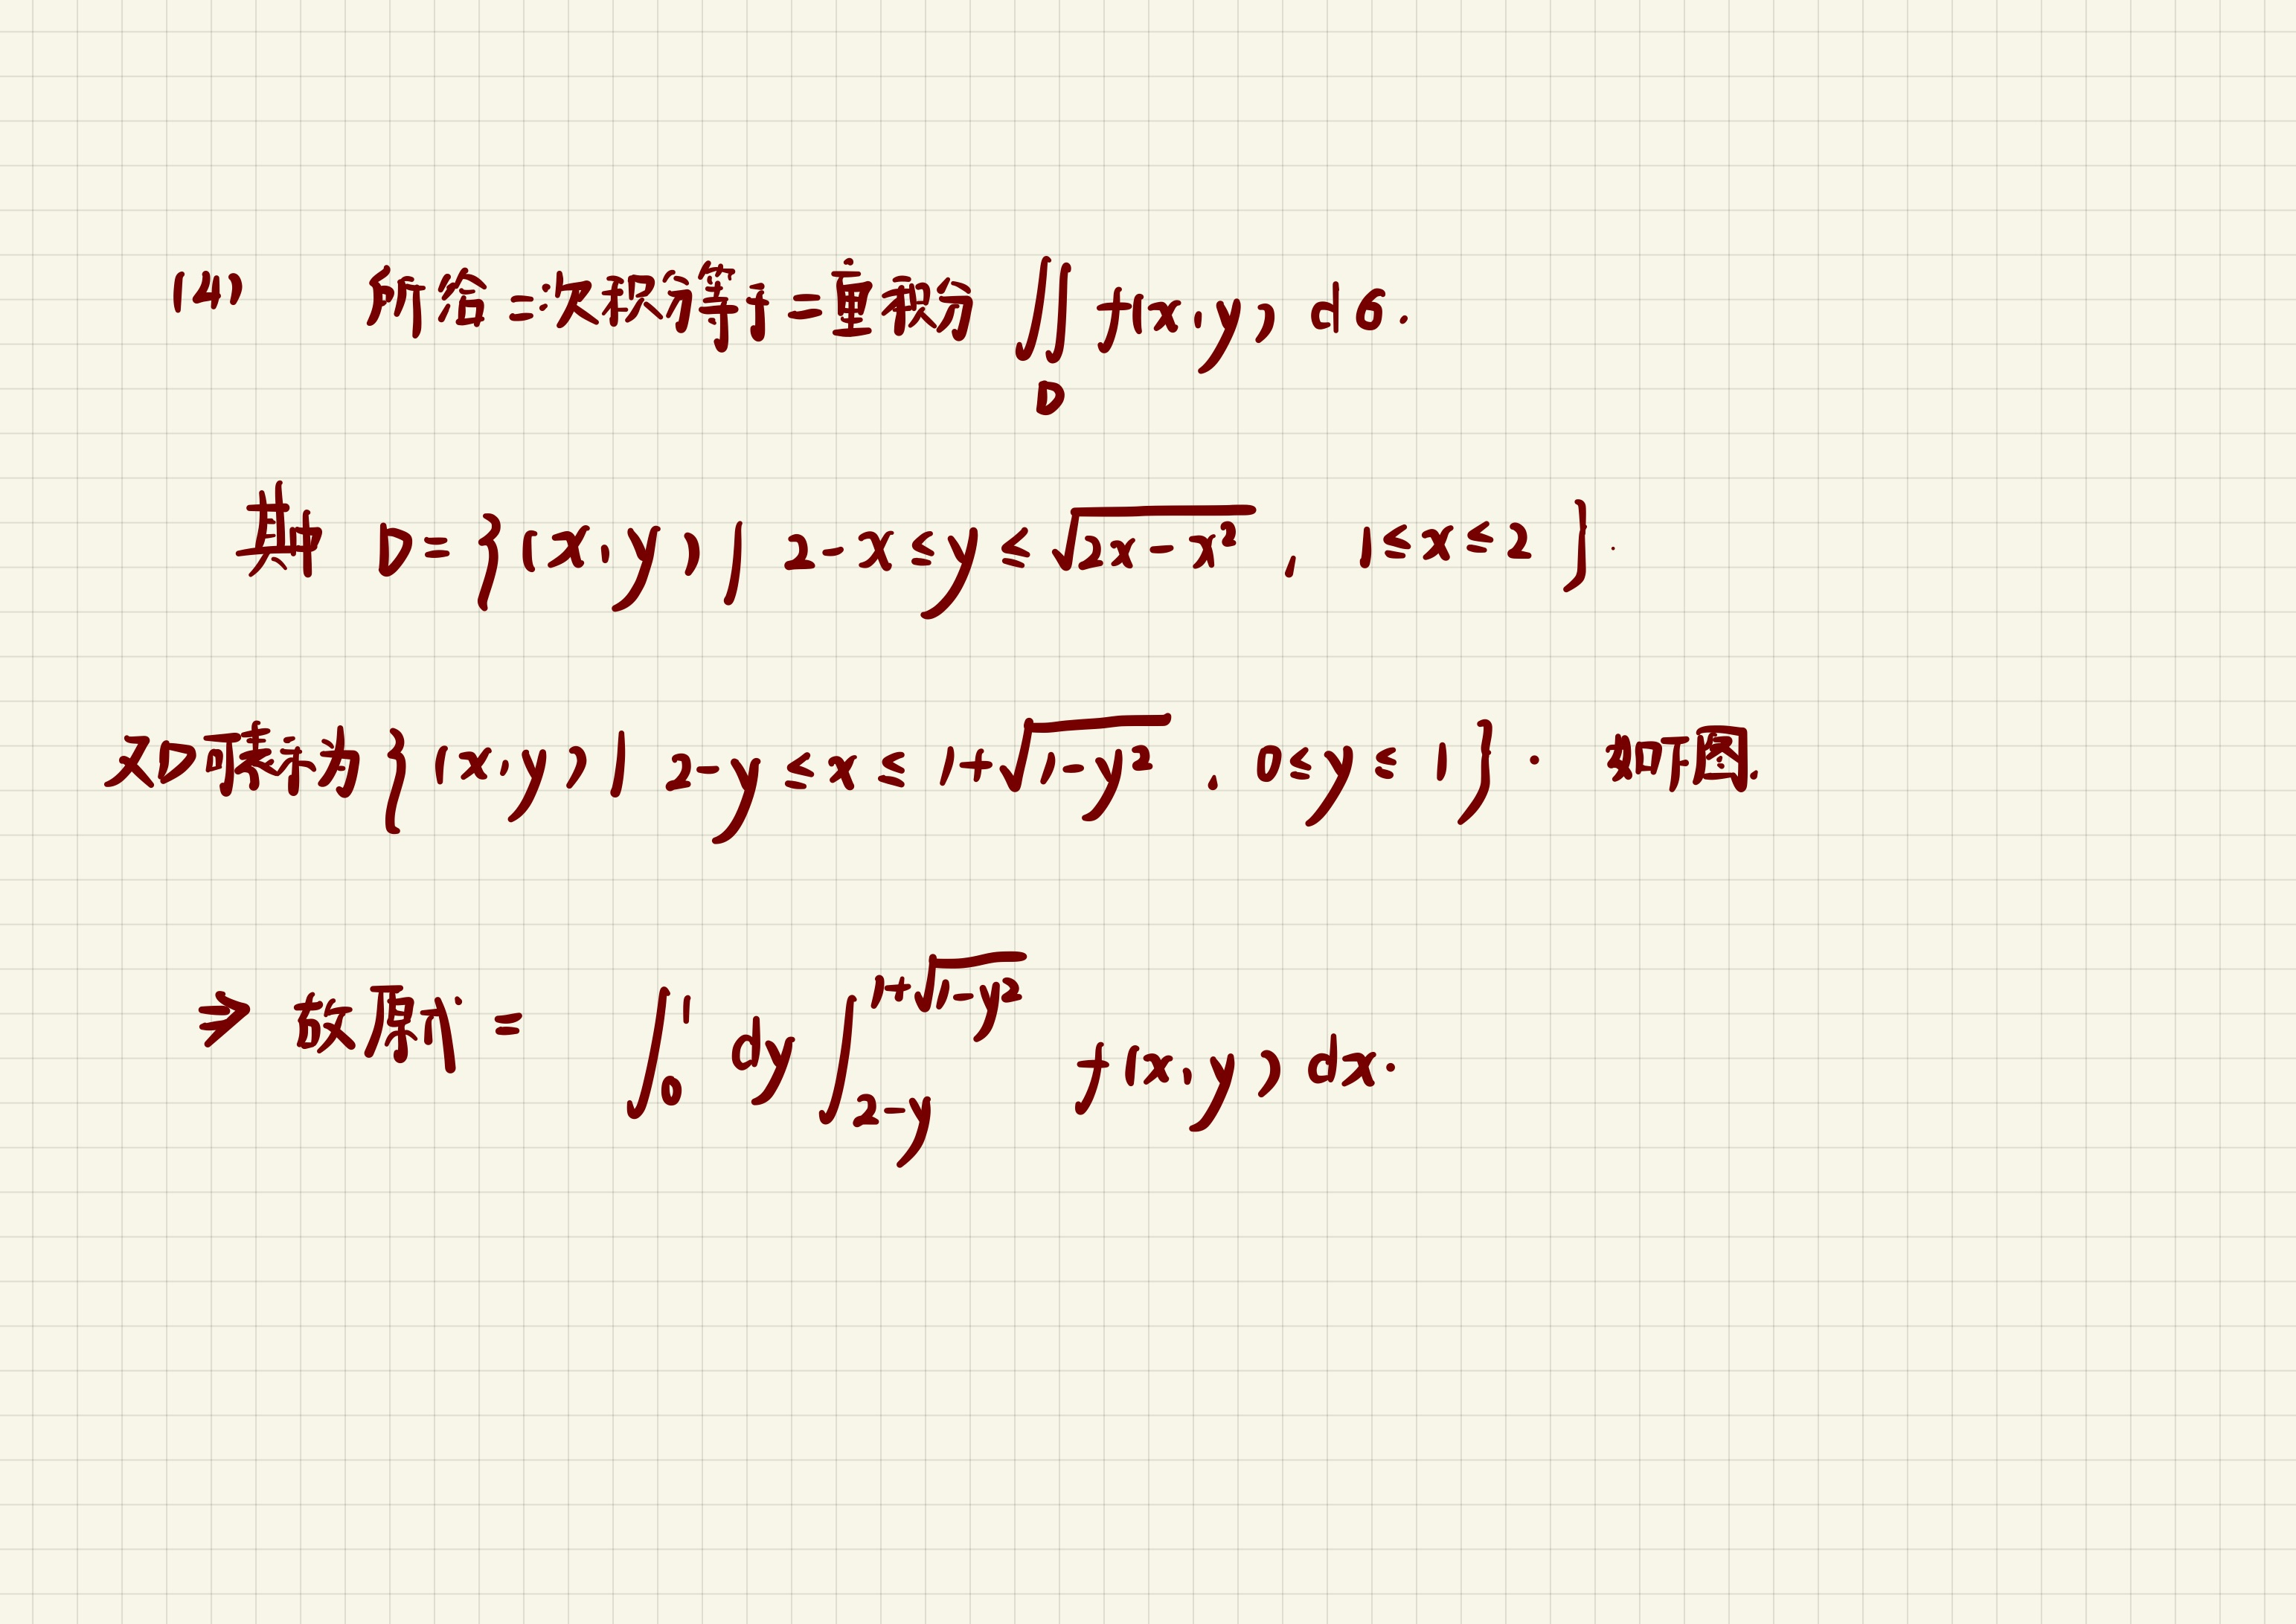 (4) 所给二次积分等于二重积分 ∬_D f(x,y) dσ.
其中 D={(x,y)| 2-x≤y≤√(2x-x²), 1≤x≤2}.
又D可表示为{(x,y)| 2-y≤x≤1+√(1-y²), 0≤y≤1}. 如下图.
⇒ 故原式= ∫_0^1 dy ∫_{2-y}^{1+√(1-y²)} f(x,y) dx.